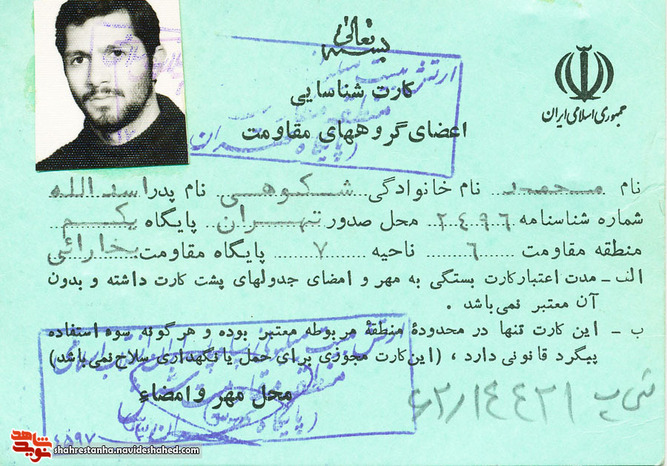 بسمه تعالی
کارت شناسایی
اعضای گروههای مقاومت
جمهوری اسلامی ایران
نام محمد نام خانوادگی شکوهی نام پدر اسدالله
شماره شناسنامه ۲۴۹۶ محل صدور تهران پایگاه یکم
منطقه مقاومت ۶ ناحیه ۷ پایگاه مقاومت بخارائی
الف ـ مدت اعتبار کارت بستگی به مهر و امضای جدولهای پشت کارت داشته و بدون
آن معتبر نمی‌باشد .
ب ـ این کارت تنها در محدودهٔ منطقهٔ مربوطه معتبر بوده و هرگونه سوء استفاده
پیگرد قانونی دارد ، (این کارت مجوزی برای حمل یا نگهداری سلاح نمی‌باشد)
محل مهر و امضاء
شاهد
نوید
shahrestanha.navideshahed.com